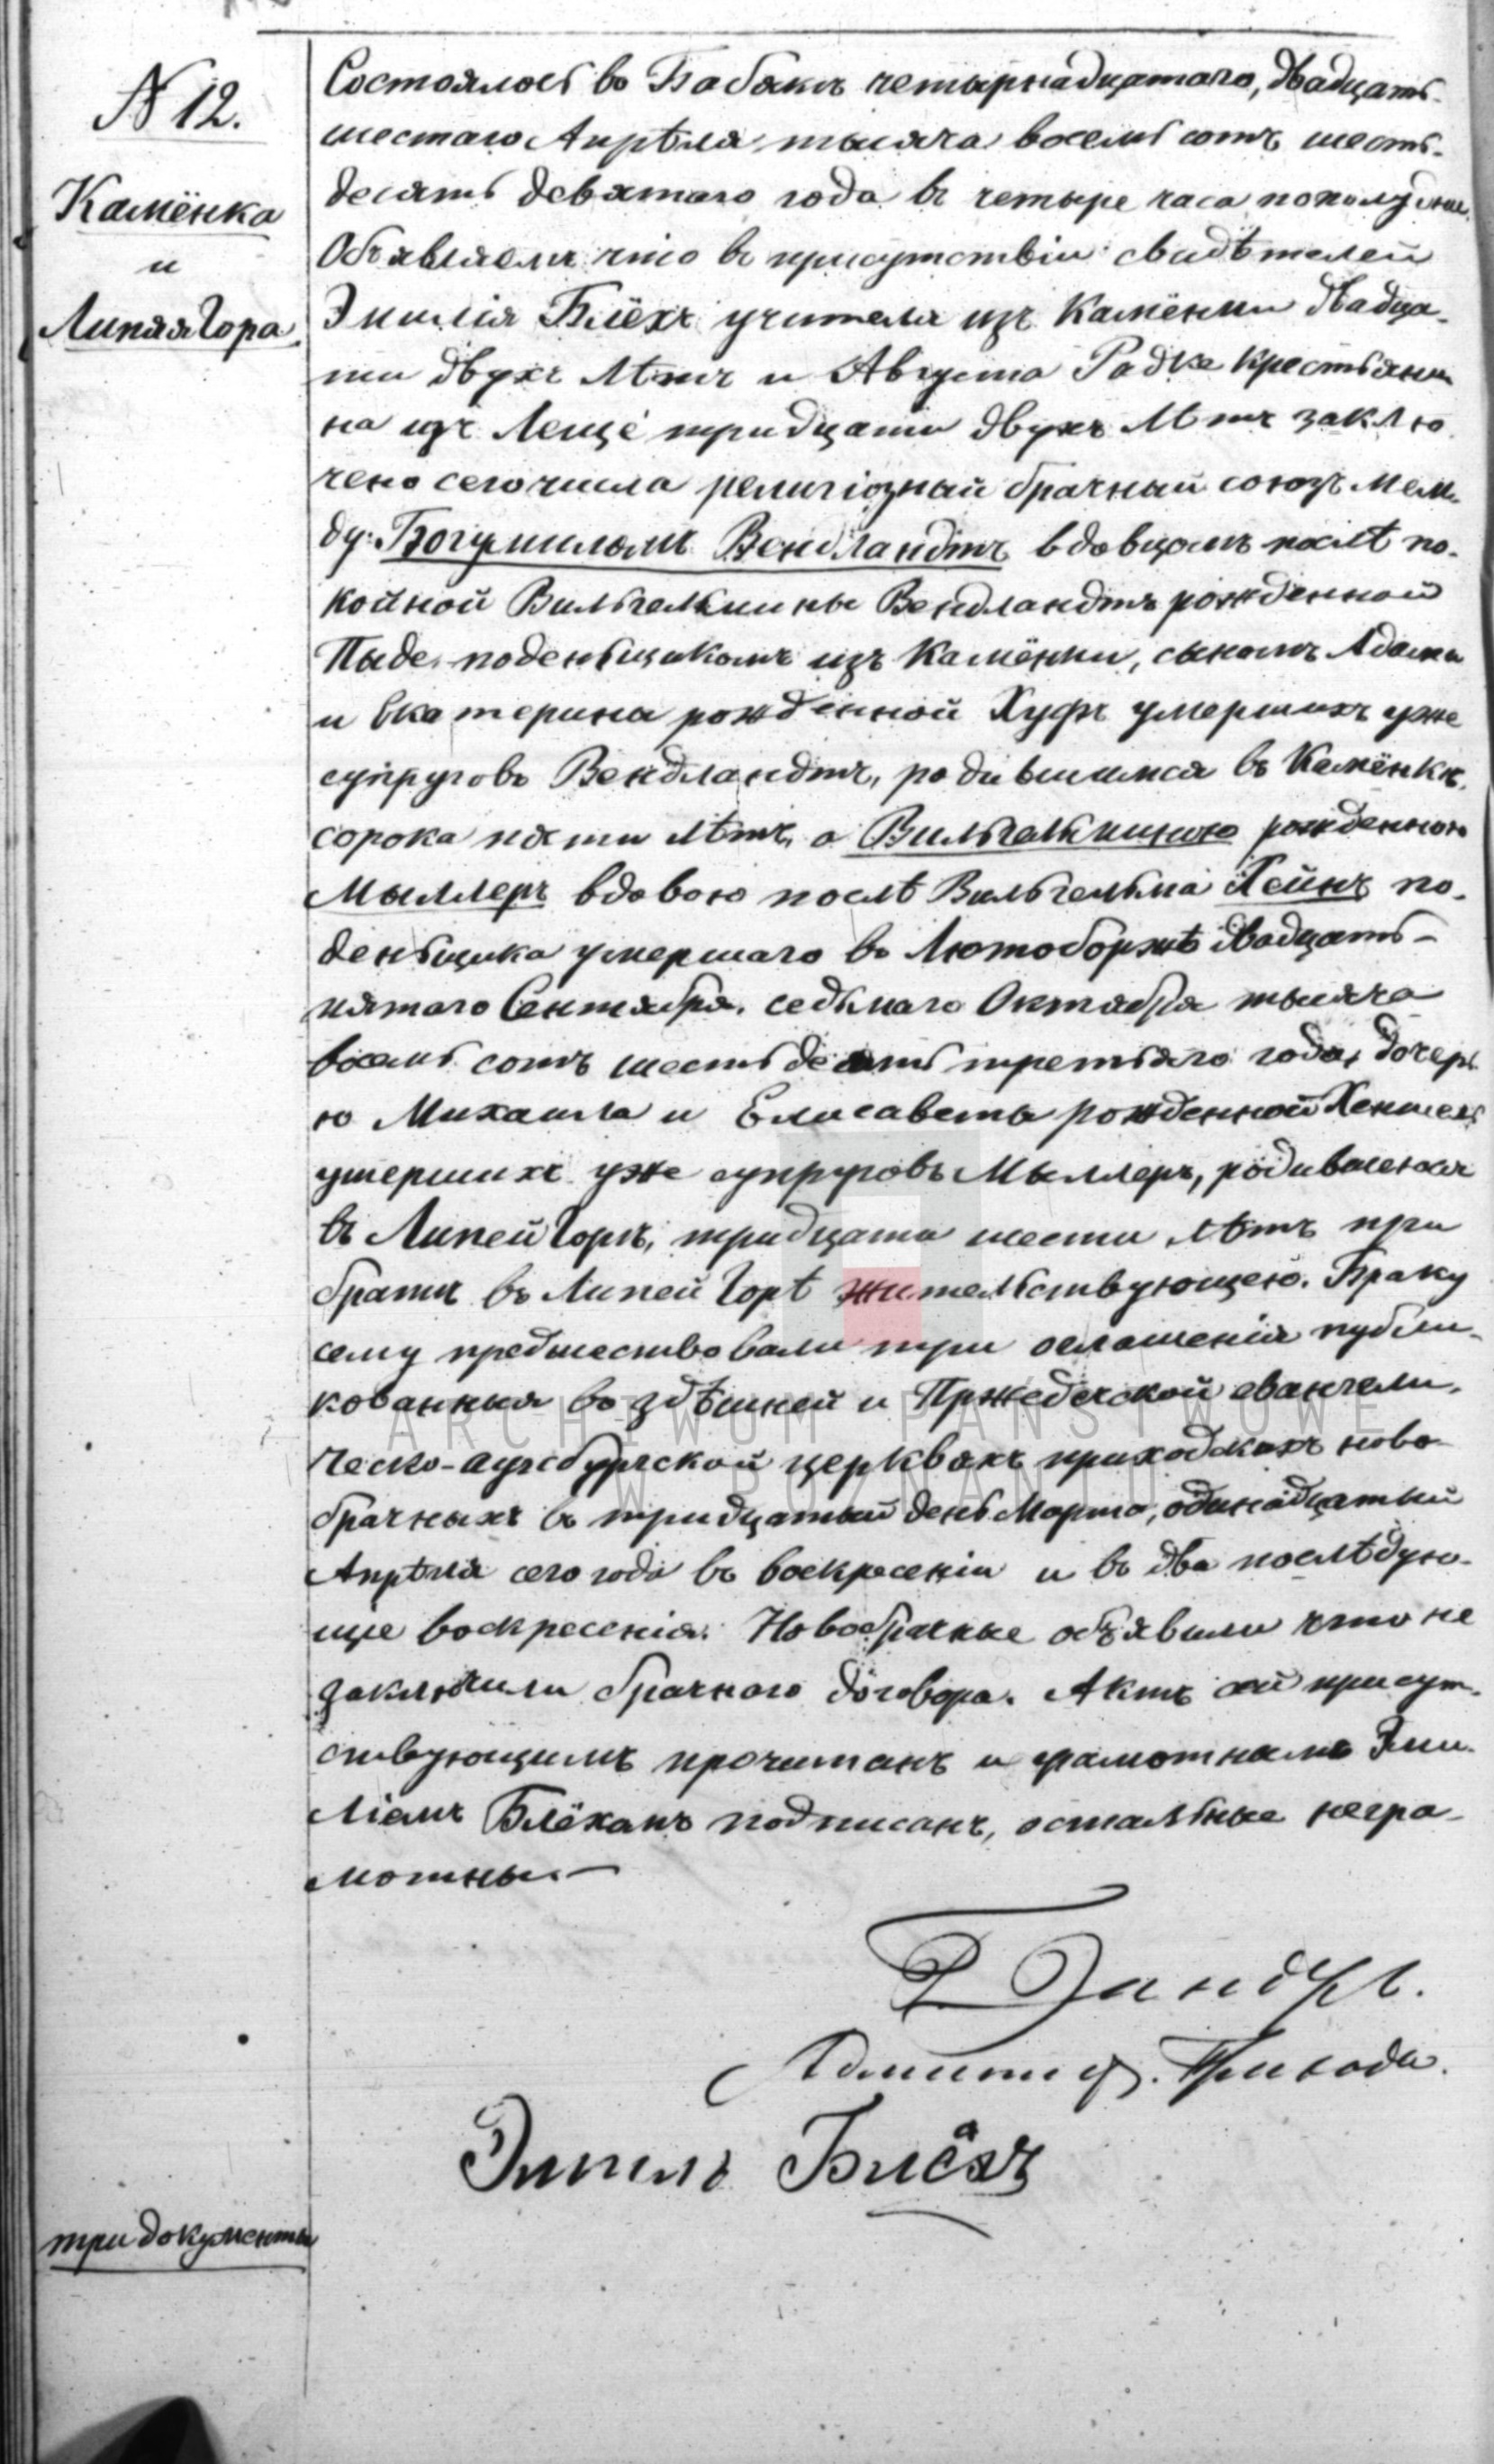 N 12.
Камёнка
и
Липяя Гора
Состоялось во Бабякъ четырнадцатаго, двадцать-
шестаго Апрѣля тысяча восемь сотъ шесть-
десятъ девятаго года въ четыре часа пополудни.
Объявляемъ что въ присутствіи свидѣтелей
Эмилія Блёхъ учителя изъ Камёнки двадца-
ти двухъ лѣтъ и Августа Радке крестьяни
на изъ Леще тридцати двухъ лѣтъ заклю
чено сего числа религіозный брачный союзъ меж-
ду: Богумиломъ Вендландтъ вдовцомъ послѣ по-
койной Вильгельмины Вендландтъ рожденной
Пыде, поденьщикомъ изъ Камёнки, сыномъ Адама
и Екатерина рожденной Хуфъ умершихъ уже
супруговъ Вендландтъ, родившимся въ Камёнкѣ,
сорока пяти лѣтъ, а Вильгельминою рожденною
Мыллеръ вдовою послѣ Вильгельма Хейнъ по-
деньщика умершаго во Лютоборжѣ двадцать-
пятаго Сентября, седьмаго Октября тысяча
восемь сотъ шестьдесятъ третьяго года, дочерь
ю Михаила и Елисаветы рожденной Хеншель
умершихъ уже супруговъ Мыллеръ, родившеюся
въ Липей Горѣ, тридцати шести лѣтъ при
братѣ въ Липей Горѣ жительствующею. Браку
сему предшествовали три оглашенія публи-
кованныя во здѣшней и Пржедечской евангели-
ческо-аугсбургской церквяхъ приходскихъ ново-
брачныхъ въ тридцатый день Марта, одинадцатый
Апрѣля сего года въ воскресеніи и въ два послѣдую-
щіе воскресенія. Новобрачные объявили что не
заключили брачнаго договора. Актъ сей присут-
ствующимъ прочитанъ и грамотнымъ Эми-
ліемъ Блёхомъ подписанъ, остальные негра-
мотны.—
Прихода.
Эмиль Блёхъ
три документы
ARCHIWUM PAŃSTWOWE
W POZNANIU